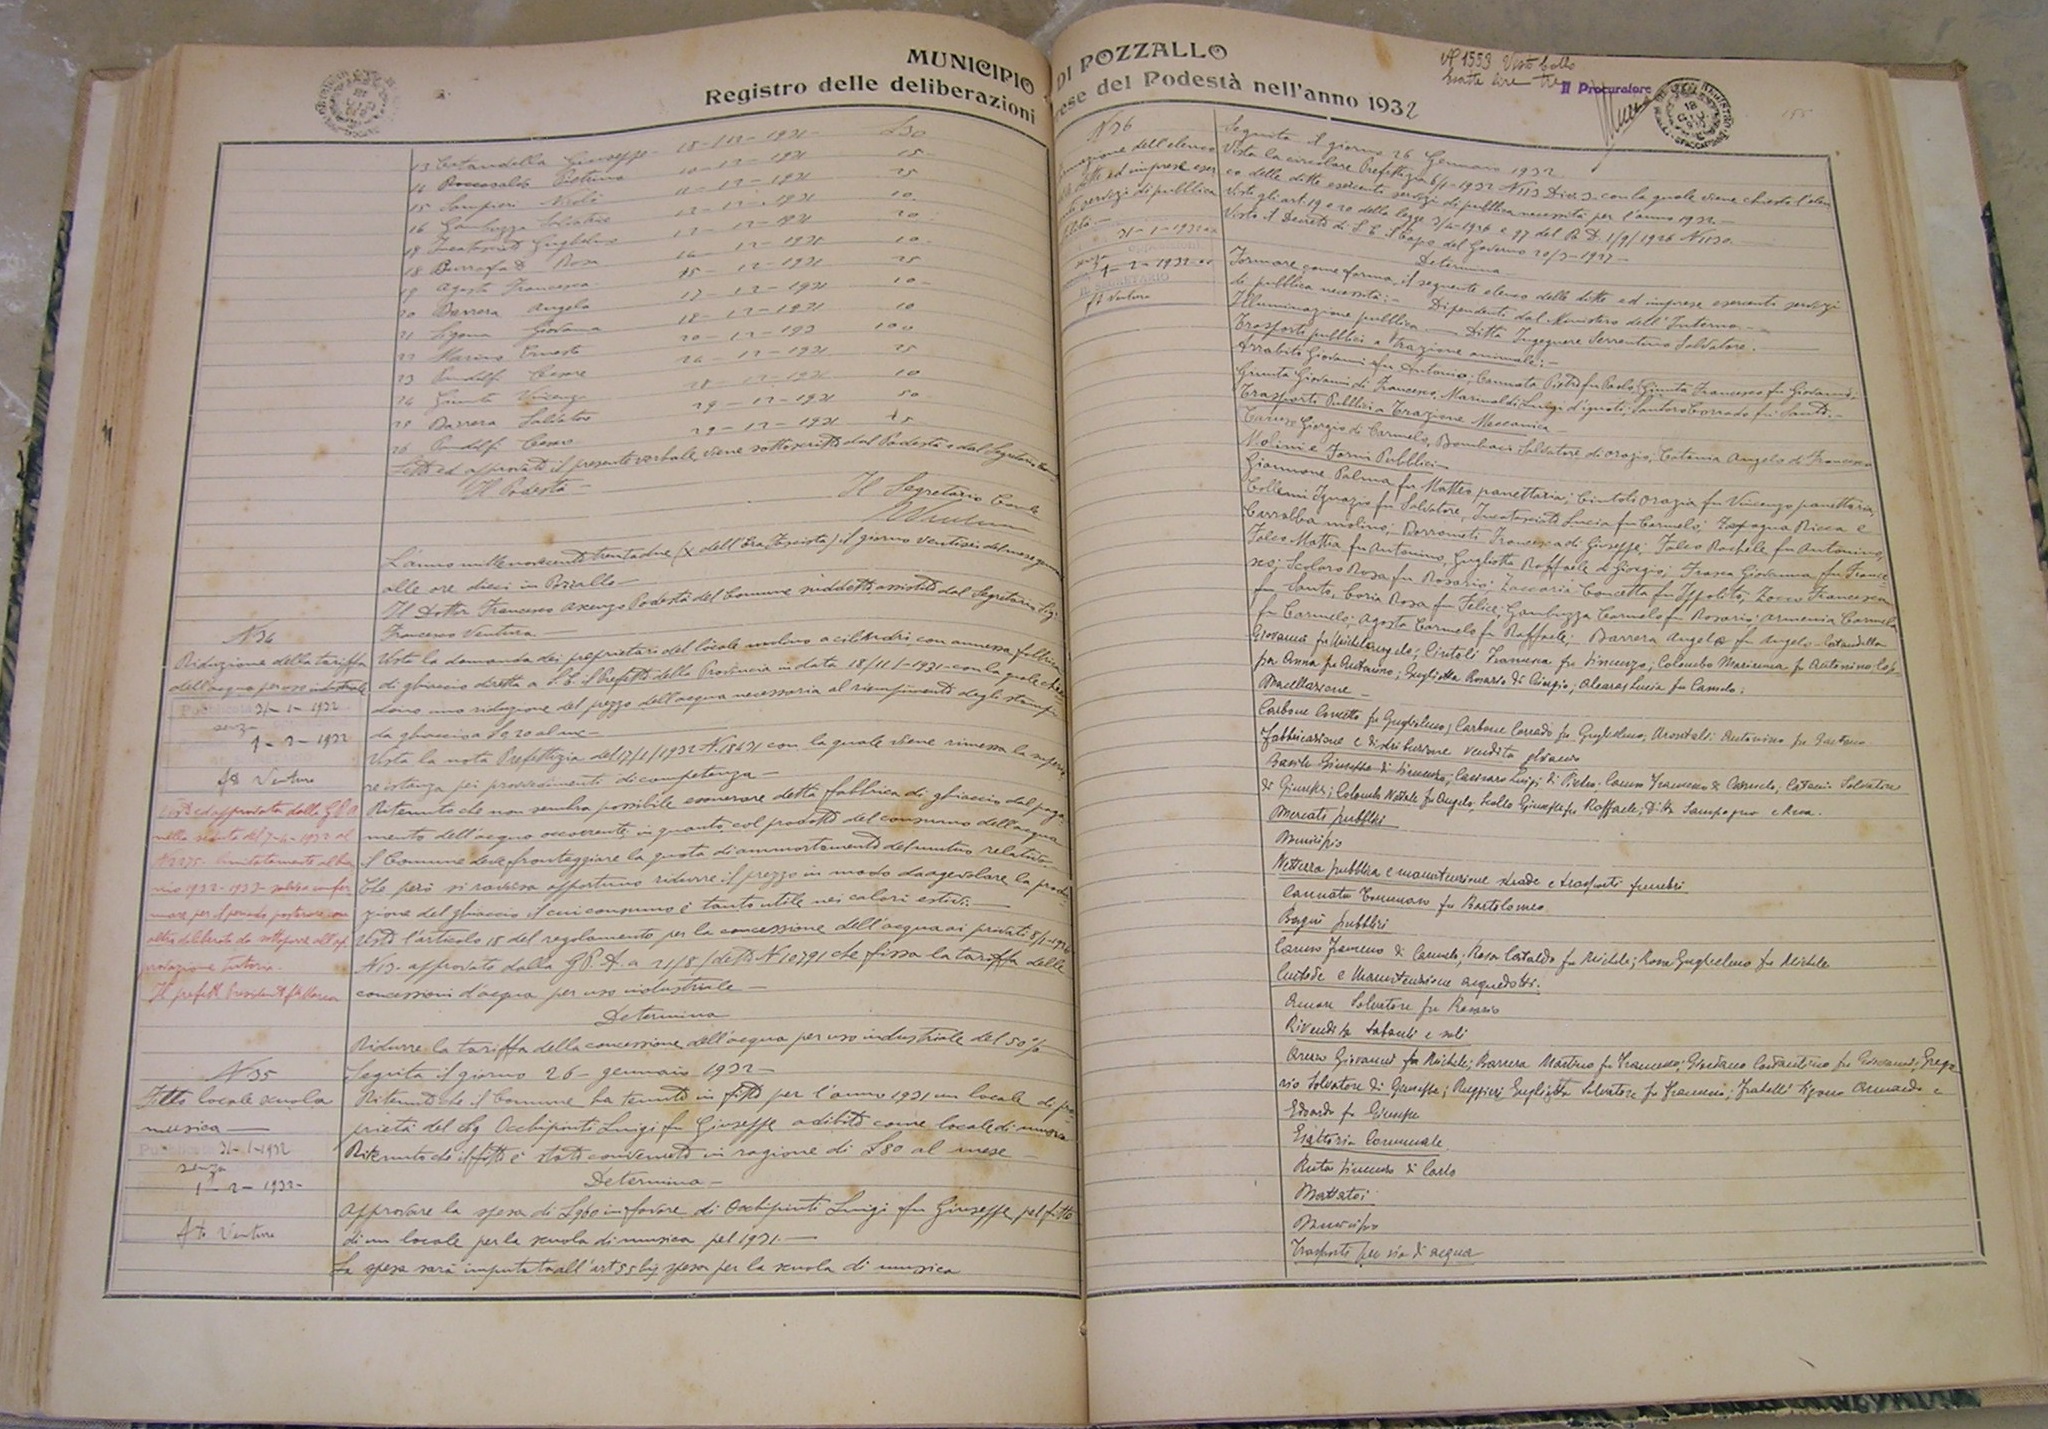 MUNICIPIO DI POZZALLO
Registro delle deliberazioni prese del Podestà nell'anno 1932
13 Cataudella Giuseppe 18-12-1931 £30
14 Roccasalvo 10-12-1931 15
15 Sampieri 11-12-1931 25
16 Gambuzza Salvatore 12-12-1931 10
17 Guglielmo 12-12-1931 20
18 Rosa 12-1931 10
19 Agosta Francesca 15-12-1931 25
20 Barrera Angela 17-12-1931 10
21 Sigona Giovanna 18-12-1931 10
22 Marino Ernesto 20-12-193 100
23 Pandolfi Cesare 24-12-1931 25
24 Giunta Vincenzo 28-12-1931 10
25 Barrera Salvatore 29-12-1931 50
26 Pandolfi Cesare 29-12-1931 15
Letto ed approvato il presente verbale viene sottoscritto dal Podestà e dal Segretario
Il Podestà Il Segretario
L'anno millenovecentotrentadue (X dell'Era Fascista) il giorno ventisei del mese gennaio
alle ore dieci in Pozzallo
Il Dottor Francesco Podestà del Comune suddetto assistito dal Segretario Sig.
Francesco Ventura
N 34
Riduzione della tariffa
dell'acqua per uso industriale
31-1-1932
senza
1-2-1932
fto Ventura
Vista la domanda dei proprietari del locale molino a cilindri, con annessa fabbrica
di ghiaccio diretta a S.E. il Prefetto della Provincia in data 18/11/1931 con la quale chie
dono una riduzione del prezzo dell'acqua necessaria al riempimento degli stampi
da ghiaccio a £ 9.20 al mc
Vista la nota Prefettizia del 17/1/1932 N. 18631 con la quale viene rimessa la
istanza pei provvedimenti di competenza
Ritenuto che non sembra possibile esonerare detta fabbrica di ghiaccio dal paga
mento dell'acqua occorrente in quanto col prodotto del consumo dell'acqua
il Comune deve fronteggiare la quota di ammortamento del mutuo relativo
Che però si ravvisa opportuno ridurre il prezzo in modo da agevolare la produ
zione del ghiaccio il cui consumo è tanto utile nei calori estivi.
Visto l'articolo 18 del regolamento per la concessione dell'acqua ai privati
N 13 approvato dalla G.P.A. a 21/8/detto N 10791 che fissa la tariffa delle
concessioni d'acqua per uso industriale
Determina
Ridurre la tariffa della concessione dell'acqua per uso industriale del 50%
Visto ed approvato dalla G P A
nella seduta del 7-4-1932 al
N 2275 limitatamente al bien
nio 1932-1933 salvo confer
mare per il periodo posteriore con
altra deliberato da sottoporre all'ap
provazione tutoria.
Il prefetto Presidente
N 35
Fitto locale scuola
musica
Pubblicata 31-1-1932
senza
1-2-1932
fto Ventura
Seguita il giorno 26 gennaio 1932
Ritenuto che il Comune ha tenuto in fitto per l'anno 1931 un locale di pro
prietà del Sig Occhipinti Luigi fu Giuseppe adibito come locale di musica
Ritenuto che il fitto è stato convenuto in ragione di £80 al mese
Determina
Approvare la spesa di £960 in favore di Occhipinti Luigi fu Giuseppe pel fitto
di un locale per la scuola di musica pel 1931.
La spesa sarà imputata all'art 55 spesa per la scuola di musica
N° 1553 Visto bollo
lire tre
Il Procuratore
155
N 36
Formazione dell'elenco
delle ditte ed imprese eser
centi servizi di pubblica
31-1-1932
opposizioni
senza
1-2-1932
IL SEGRETARIO
fto Ventura
Seguita il giorno 26 Gennaio 1932
Vista la circolare Prefettizia 6/1-1932 N 113 Div. 3 con la quale viene chiesto l'elen
co delle ditte esercenti servizi di pubblica necessità per l'anno 1932
Visto gli art. 19 e 20 della legge 3/4-1926 e 97 del R D. 1/9/1926 N 1130
Visto il Decreto di S.E. il Capo del Governo 20/3-1927
Determina
Formare come forma, il seguente elenco delle ditte ed imprese esercenti servizi
di pubblica necessità: Dipendenti dal Ministero dell'Interno
Illuminazione pubblica Ditta Ingegnere Serrentino Salvatore.
Trasporti pubblici a trazione animale:
Arrabito Giovanni fu Antonio; Cannata Pietro fu Paolo; Giunta Francesco fu Giovanni
Giunta Giovanni di Francesco, Marinaldi Luigi d'ignoti; Santoro Corrado fu Santo.
Trasporti Pubblici a Trazione Meccanica
Caruso Giorgio di Carmelo, Bombaci Salvatore di Orazio; Catania Angelo di Francesco
Molini e Forni Pubblici
Giannone Palma fu Matteo panettaria; Cintoli Orazia fu Vincenzo panettaria
Ignazio fu Salvatore, Lucia fu Carmelo; Ricca e
molino; Borrometi Francesca di Giuseppe; Falco Rachele fu Antonino;
Falco Mattia fu Antonino, Guglietta Raffaele di Giorgio; Giovanna fu France
sco; Scolaro Rosa fu Rosario; Zaccaria Concetta fu Ippolito; Zocco Francesca
fu Santo, Coria Rosa fu Felice; Gambuzza Carmelo fu Rosario; Armenia Carmela
fu Carmelo; Agosta Carmelo fu Raffaele; Barrera Angelo fu Angelo Cataudella
Giovanna fu Michelangelo; Cintoli Francesca fu Vincenzo; Colombo Marianna fu Antonino; Cap
pa Anna fu Antonino; Guglietta Rosario di Giorgio; Lucia fu Carmelo;
Macellazione
Carbone Concetto fu Guglielmo; Carbone Corrado fu Guglielmo; Antonino fu Gaetano
Fabbricazione e distribuzione vendita ghiaccio
Basile Giuseppe di Vincenzo; Luigi di Pietro. Caruso Francesco di Carmelo, Catania Salvatore
di Giuseppe; Colombo Natale fu Angelo, Scollo Giuseppe fu Raffaele; Ditta
Mercati pubblici
Municipio
Nettezza pubblica e manutenzione strade e trasporti funebri
Cannata Tommaso fu Bartolomeo
Bagni pubblici
Caruso Francesco di Carmelo; Rosa Cataldo fu Michele; Rosa Guglielmo fu Michele
Custode e Manutenzione acquedotti.
Amore Salvatore fu Rosario
Rivendite tabacchi e sali
Giovanni fu Michele; Barrera Martino fu Francesco; Giordano Costantino fu Giovanni; Grego
rio Salvatore di Giuseppe; Ruggieri Guglietta Salvatore fu Francesco; Fratelli Sigona Armando e
Edoardo fu Giuseppe
Esattoria Comunale
Vincenzo di Carlo
Mattatoi
Municipio
Trasporti per via di acqua